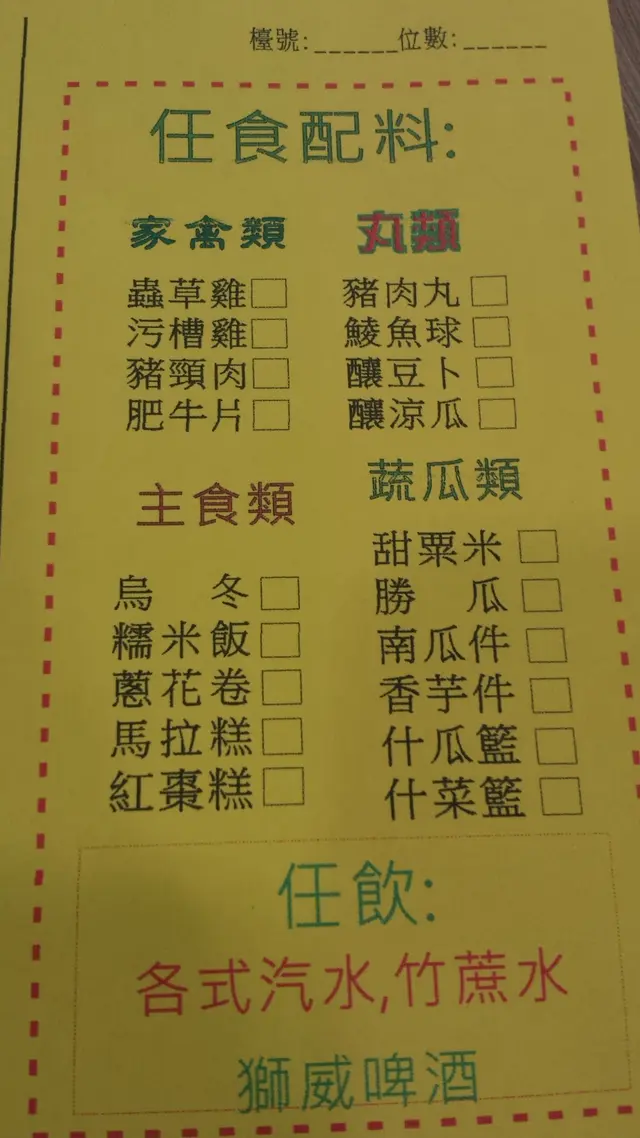 檯號:______位數:______
任食配料:
家禽類
蟲草雞□
污糟雞□
豬頸肉□
肥牛片□
丸類
豬肉丸□
鯪魚球□
釀豆卜□
釀涼瓜□
主食類
烏　冬□
糯米飯□
蔥花卷□
馬拉糕□
紅棗糕□
蔬瓜類
甜粟米□
勝　瓜□
南瓜件□
香芋件□
什瓜籃□
什菜籃□
任飲:
各式汽水,竹蔗水
獅威啤酒